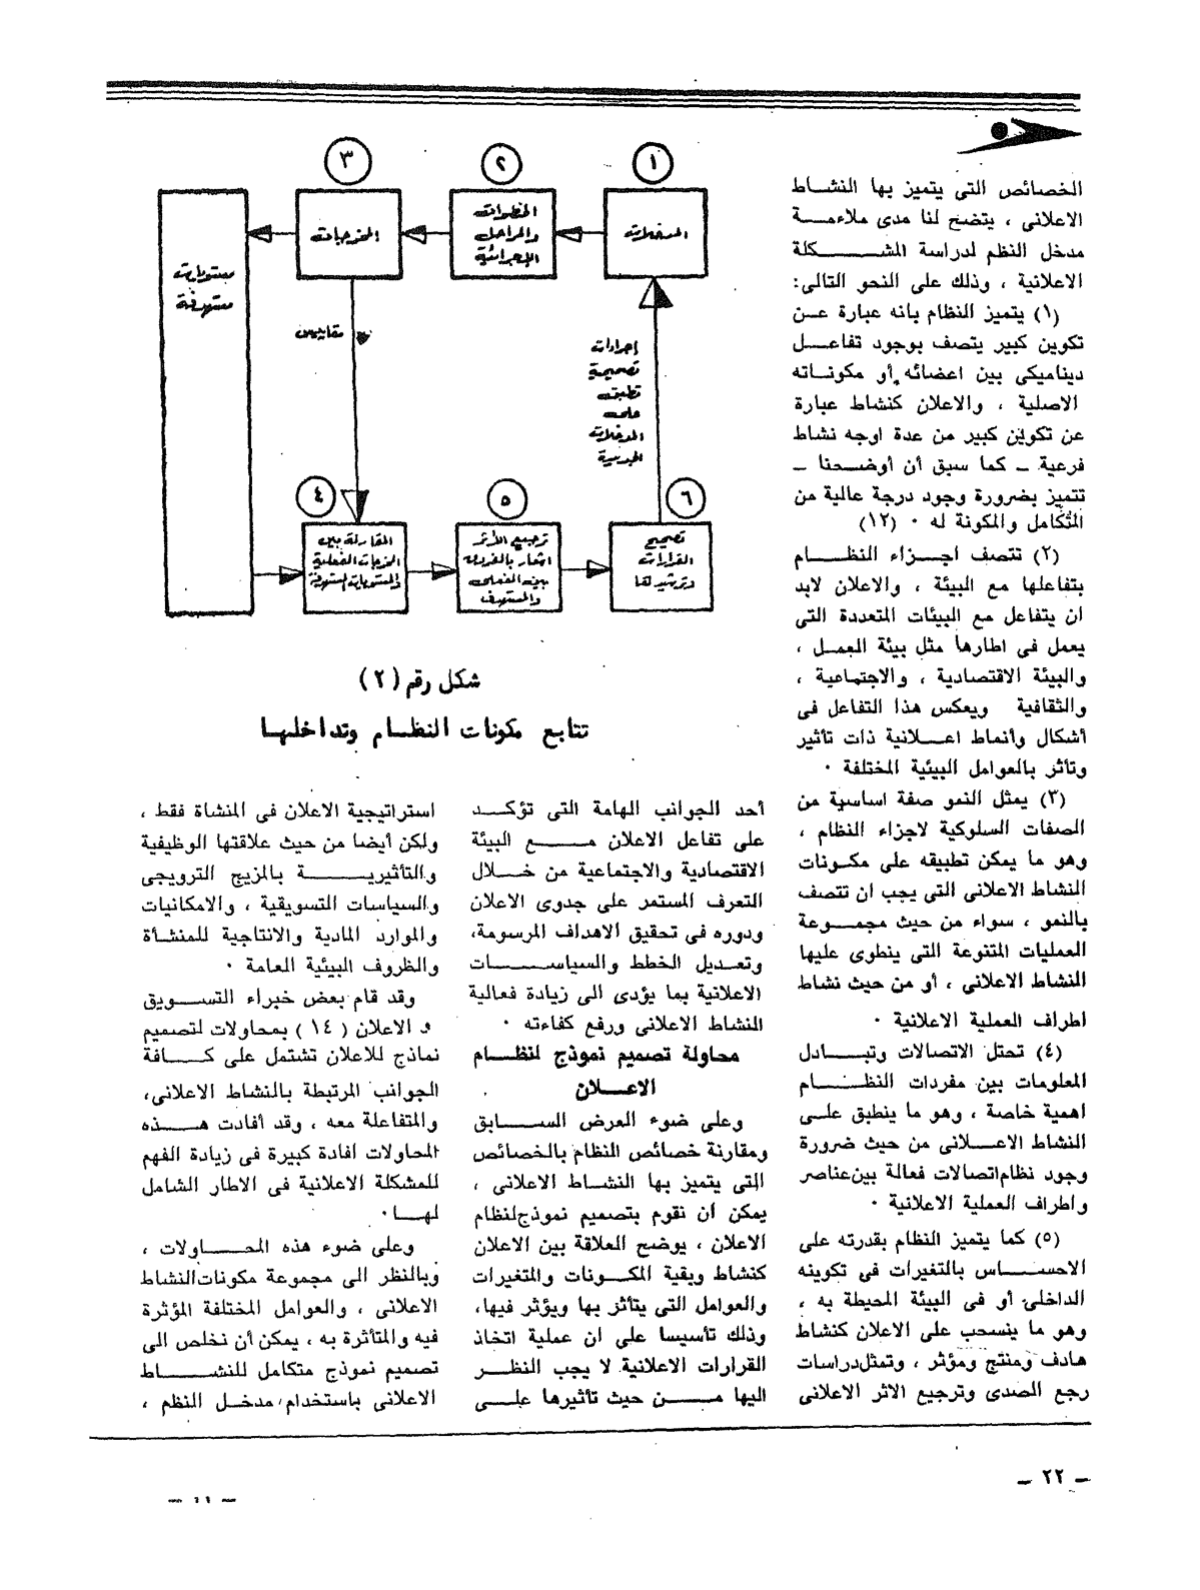 الخصائص التى يتميز بها النشاط
الاعلانى ، يتضح لنا مدى ملاءمة
مدخل النظم لدراسة المشكلة
الاعلانية ، وذلك على النحو التالى:
(١) يتميز النظام بانه عبارة عن
تكوين كبير يتصف بوجود تفاعل
ديناميكى بين اعضائه أو مكوناته
الاصلية ، والاعلان كنشاط عبارة
عن تكوين كبير من عدة اوجه نشاط
فرعية ـ كما سبق أن أوضحنا ـ
تتميز بضرورة وجود درجة عالية من
التكامل والمكونة له ٠ (١٢)
(٢) تتصف اجزاء النظام
بتفاعلها مع البيئة ، والاعلان لابد
ان يتفاعل مع البيئات المتعددة التى
يعمل فى اطارها مثل بيئة العمل ،
والبيئة الاقتصادية ، والاجتماعية ،
والثقافية ويعكس هذا التفاعل فى
أشكال وأنماط اعلانية ذات تأثير
وتأثر بالعوامل البيئية المختلفة ٠
(٣) يمثل النمو صفة اساسية من
الصفات السلوكية لاجزاء النظام ،
وهو ما يمكن تطبيقه على مكونات
النشاط الاعلانى التى يجب ان تتصف
بالنمو ، سواء من حيث مجموعة
العمليات المتنوعة التى ينطوى عليها
النشاط الاعلانى ، أو من حيث نشاط
اطراف العملية الاعلانية ٠
(٤) تحتل الاتصالات وتبادل
المعلومات بين مفردات النظام
اهمية خاصة ، وهو ما ينطبق على
النشاط الاعلانى من حيث ضرورة
وجود نظام اتصالات فعالة بين عناصر
واطراف العملية الاعلانية ٠
(٥) كما يتميز النظام بقدرته على
الاحساس بالتغيرات فى تكوينه
الداخلى أو فى البيئة المحيطة به ،
وهو ما ينسحب على الاعلان كنشاط
هادف ومنتج ومؤثر ، وتمثل دراسات
رجع الصدى وترجيع الاثر الاعلانى
١
المدخلات
٢
الخطوات
والمراحل
الإجرائية
٣
المخرجات
مستويات
مستهدفة
مقاييس
إجراءات
تصحيحية
تطبق
على
المدخلات
الجديدة
٤
المقارنة بين
المخرجات الفعلية
والمستويات المستهدفة
٥
ترجيع الأثر
اشعار بالفروق
بين الفعلى
والمستهدف
٦
تصحيح
القرارات
وترشيدها
شكل رقم (٢)
تتابع مكونات النظام وتداخلها
أحد الجوانب الهامة التى تؤكد
على تفاعل الاعلان مع البيئة
الاقتصادية والاجتماعية من خلال
التعرف المستمر على جدوى الاعلان
ودوره فى تحقيق الاهداف المرسومة،
وتعديل الخطط والسياسات
الاعلانية بما يؤدى الى زيادة فعالية
النشاط الاعلانى ورفع كفاءته ٠
محاولة تصميم نموذج لنظام
الاعلان
وعلى ضوء العرض السابق
ومقارنة خصائص النظام بالخصائص
التى يتميز بها النشاط الاعلانى ،
يمكن أن نقوم بتصميم نموذج لنظام
الاعلان ، يوضح العلاقة بين الاعلان
كنشاط وبقية المكونات والمتغيرات
والعوامل التى يتأثر بها ويؤثر فيها،
وذلك تأسيسا على ان عملية اتخاذ
القرارات الاعلانية لا يجب النظر
اليها من حيث تأثيرها على
استراتيجية الاعلان فى المنشاة فقط ،
ولكن أيضا من حيث علاقتها الوظيفية
والتأثيرية بالمزيج الترويجى
والسياسات التسويقية ، والامكانيات
والموارد المادية والانتاجية للمنشأة
والظروف البيئية العامة ٠
وقد قام بعض خبراء التسويق
و الاعلان ( ١٤ ) بمحاولات لتصميم
نماذج للاعلان تشتمل على كافة
الجوانب المرتبطة بالنشاط الاعلانى،
والمتفاعلة معه ، وقد أفادت هذه
المحاولات افادة كبيرة فى زيادة الفهم
للمشكلة الاعلانية فى الاطار الشامل
لها ٠
وعلى ضوء هذه المحاولات ،
وبالنظر الى مجموعة مكونات النشاط
الاعلانى ، والعوامل المختلفة المؤثرة
فيه والمتأثرة به ، يمكن أن نخلص الى
تصميم نموذج متكامل للنشاط
الاعلانى باستخدام مدخل النظم ،
ـ ٢٢ ـ